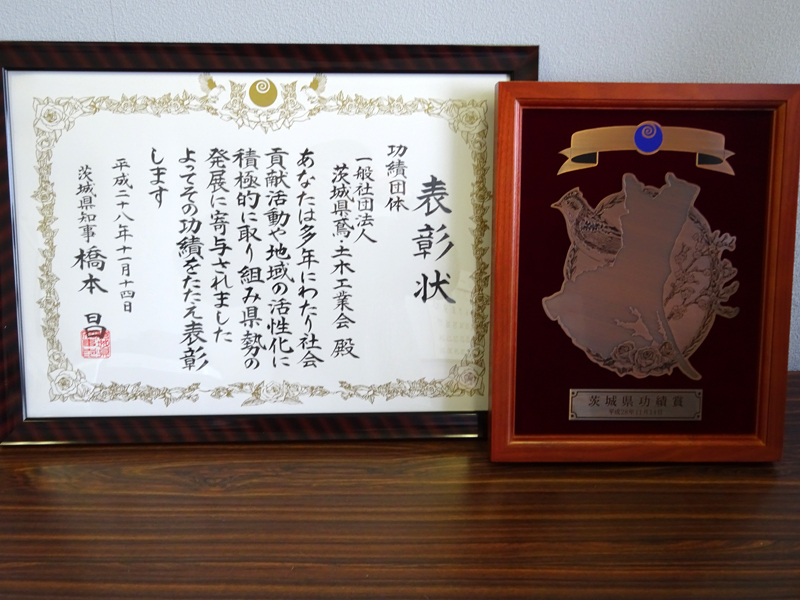 表彰状
功績団体
一般社団法人
茨城県鳶・土木工業会 殿
あなたは多年にわたり社会
貢献活動や地域の活性化に
積極的に取り組み県勢の
発展に寄与されました
よってその功績をたたえ表彰
します
平成二十八年十一月十四日
茨城県知事 橋本 昌
茨城県功績賞